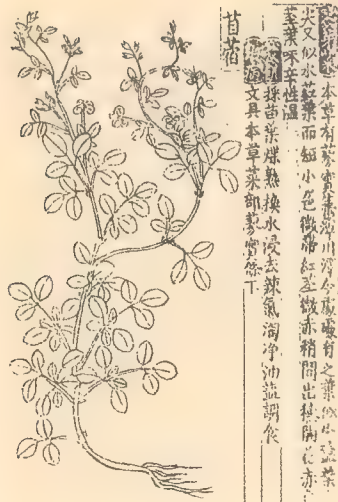 本草有蓼實生雷澤川澤今處處有之葉似小藍葉
尖又似水葒葉而短小色微帶紅莖微赤稍間出穗開花赤
莖葉味辛性溫
採苗葉煠熟換水浸去辣氣淘淨油鹽調食
文具本草菜部蓼實條下
苜蓿